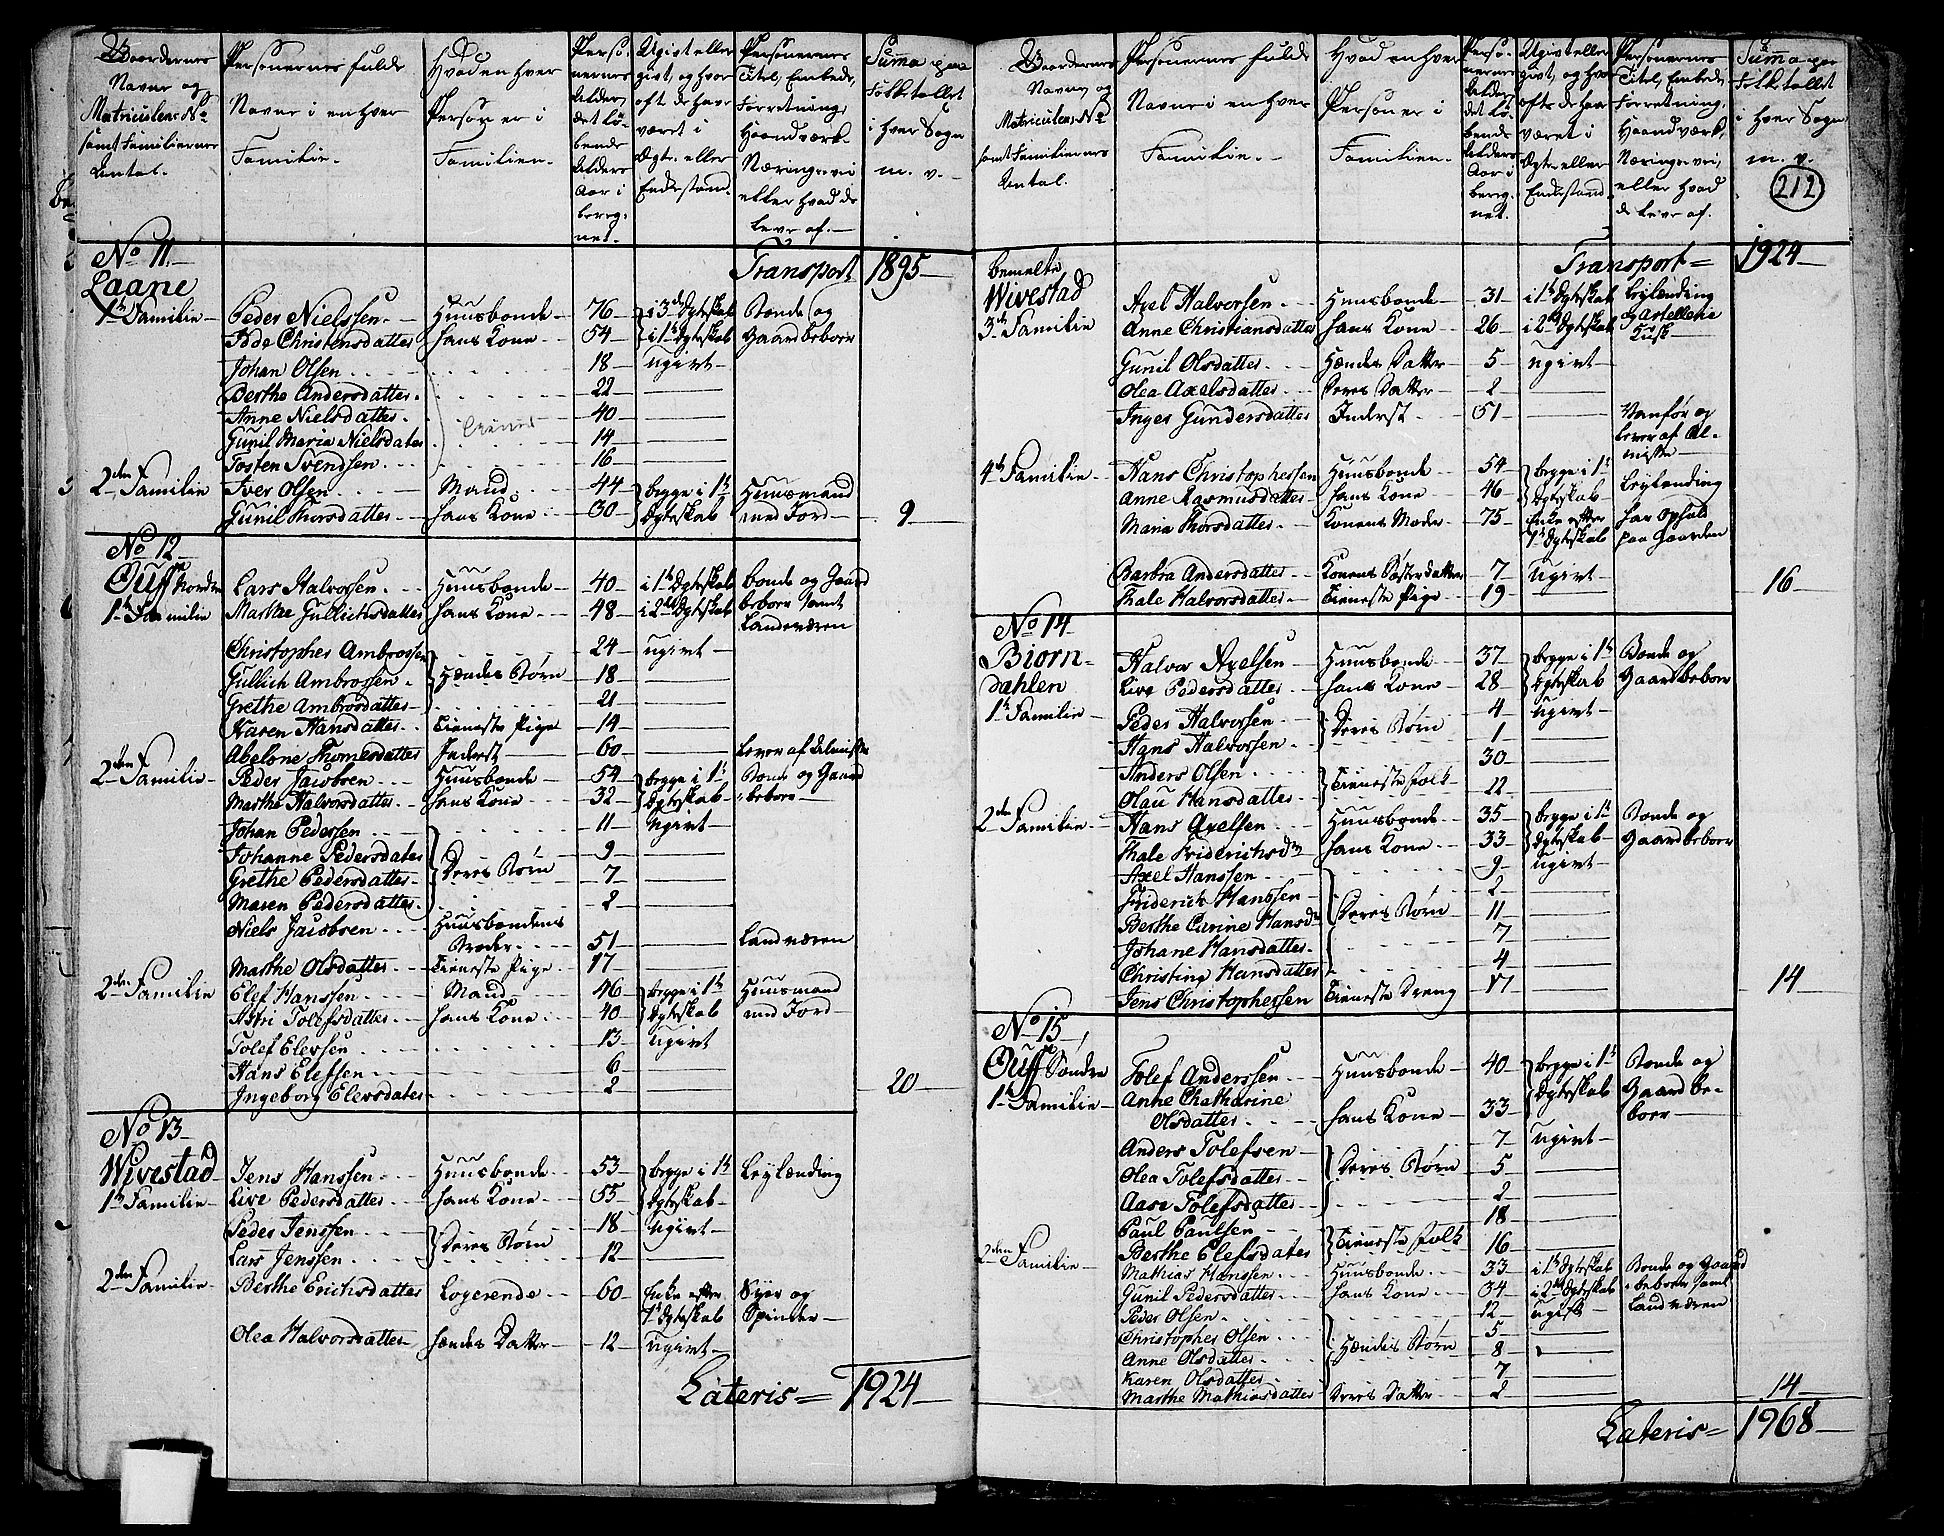 Gaardernes
Navne og
Matriculens No
samt Familiernes
Antal.
Personernes fulde
Navne i enhver
Familie.
Hvad en hver
Person er i
Familien.
Perso-
nernes
Alder,
det lø-
bende
Alders
Aar i
bereg-
net.
Ugivt eller
givt, og hvor
ofte de have
været i
Ægte- eller
Enkestand.
Personernes
Titel, Embede,
Forretning,
Haandværk
Næringsvei
eller hvad de
leve af.
Summa paa
Folketallet
i hver Sogn
m. v.
No 11.
Transport 1895
Laane
1te Familie Peder Nielssen Huusbonde 76 i 3de Ægteskab Bonde og
Christensdatter hans Kone 54 i 1te Ægteskab Gaardbeboer
Johan Olsen 18 ugivt
Berthe Andersdatter 22
Anne Nielsdatter 40
Gunil Maria Nielsdater 14
Tosten Svendsen 16
2den Familie Iver Olsen Mand 44 begge i 1te Huusmand
Gunil Thorsdatter hans Kone 30 Ægteskab med Jord 9
No 12
Ouff Nordre Lars Halvorsen Huusbonde 40 i 1te Ægteskab Bonde og Gaard
1te Familie Marthe Gullichsdatter hans Kone 48 i 2det Ægteskab beboer samt
Landeværen
Christopher Ambrossen 24 ugivt
Gullich Ambrossen Hendes Børn 18
Grethe Ambrosdatter 21
Karen Hansdatter Tieneste Pige 14
Abelone Thomesdatter Inderst 60 Lever af Almisse
2den Familie Peder Jacobsen Huusbonde 54 begge i 1te Bonde og Gaard
Marthe Halvorsdatter hans Kone 32 Ægteskab beboer
Johan Pedersen 11 ugivt
Johanne Pedersdater 9
Grethe Pedersdatter Deres Børn 7
Maren Pedersdatter 2
Niels Jacobsen Huusbondens
Broder 51 Landværen
Marthe Olsdatter Tieneste Pige 17
2den Familie Elef Hanssen Mand 46 begge i 1te Huusmand
Astri Tolefsdatter hans Kone 40 Ægteskab med Jord
Tolef Elevsen 13 ugivt
Hans Elefsen 6
Ingeborg Elevsdater 2 20
No 13
Wivestad Jens Hanssen Huusbonde 53 begge i 1te Leylænding
1te Familie Live Pedersdatter hans Kone 55 Ægteskab
Peder Jenssen 18 ugivt
Lars Jenssen Deres Børn 12
2den Familie Berthe Erichsdatter Logerende 60 Enke efter Syer og
1te Ægteskab Spinder
Olea Halvorsdatter hendes Datter 12 ugivt
Lateris = 1924
Gaardernes
Navne og
Matriculens No
samt Familiernes
Antal.
Personernes fulde
Navne i en hver
Familie.
Hvad en hver
Person er i
Familien.
Perso-
nernes
Alder,
det lø-
bende
Alders
Aar i
bereg-
net.
Ugivt eller
givt, og hvor
ofte de have
været i
Ægte eller
Enkestand
Personernes
Titel, Embede,
Forretning,
Haandværk,
Næringsvei,
eller hvad
de leve af.
Summa paa
Folketallet
i hver Sogn
m. v.
212
bemelte Transport = 1924
Wivestad Axel Halvorsen Huusbonde 31 i 1te Ægteskab Leylænding
3de Familie Anne Christiansdatter hans Kone 26 i 2det Ægteskab
Gunil Olsdatter Hendes Datter 5 ugivt
Olea Axelsdatter Deres Datter 2
Inger Gundersdatter Inderst 51 Vanför og
lever af Al-
misse
4de Familie Hans Christophersen Huusbonde 54 begge i 1te Leylænding
Anne Rasmusdatter hans Kone 46 Ægteskab
Maria Thorsdatter Konens Moder 75 Enke efter har Ophold
1te Ægteskab paa Gaarden
Barbra Andersdatter Konens Søsterdatter 7 ugivt
Thale Halvorsdatter Tieneste Pige 19 16
No 14
Biørn-
dahlen
Halvor Axelsen Huusbonde 37 begge i 1te Bonde og
Live Pedersdatter hans Kone 28 Ægteskab Gaardbeboer
1te Familie Peder Halvorsen 4 ugivt
Hans Halvorsen Deres Børn 1
Anders Olsen 30
Olau Hansdatter Tieneste folk 22
2den Familie Hans Axelsen Huusbonde 35 begge i 1te Bonde og
Thale Friderichsdr hans Kone 33 Ægteskab Gaardbeboer
Axel Hanssen 9 ugivt
Friderich Hanssen 2
Berthe Carine Hansdr Deres Børn 11
Johane Hansdatter 7
Christine Hansdatter 4
Jens Christophersen Tieneste Dreng 17 14
No 15
Ouff Søndre Tolef Anderssen Huusbonde 40 begge i 1te Bonde og
1te Familie Anne Chatharine Ægteskab Gaard be-
Olsdatter hans Kone 33 boer
Anders Tolefsen 7 ugivt
Olea Tolefsdatter Deres Børn 5
Aase Tolefsdatter 2
Paul Paulsen 18
Berthe Elefsdater Tieneste folk 16
2den Familie Mathias Hanssen Huusbonde 33 i 1te Ægteskab Bonde og Gaard
Gunil Pedersdatter hans Kone 34 i 2det Ægteskab beboer samt
Peder Olsen 12 ugift Landværen
Christopher Olsen 5
Anne Olsdatter Hendes Børn 8
Karen Olsdatter 7
Marthe Mathiasdatter Deres Datter 2 14
Lateris = 1968